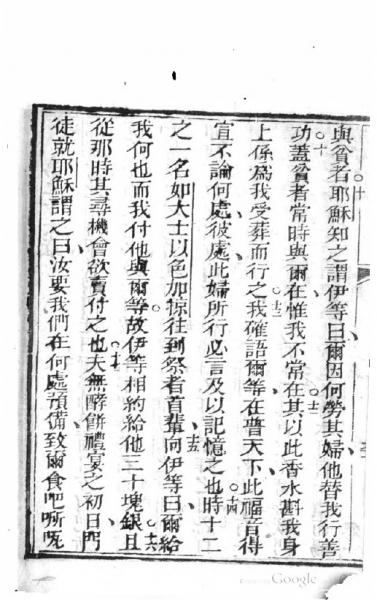 與貧者耶穌知之謂伊等曰爾因何勞其婦他替我行善
功蓋貧者常時與爾在惟我不常在其以此香水斟我身
上係爲我受葬而行之我確語爾等在普天下此福音得
宣不論何處彼處此婦所行必言及以記憶之也時十二
之一名如大士以色加掠往到祭者首輩向伊等曰爾給
我何也而我付他與爾等故伊等相約給他三十塊銀且
從那時其尋機會欲賣付之也夫無酵餅禮宴之初日門
徒就耶穌謂之曰汝要我們在何處預備致爾食吧㘔呃
Google